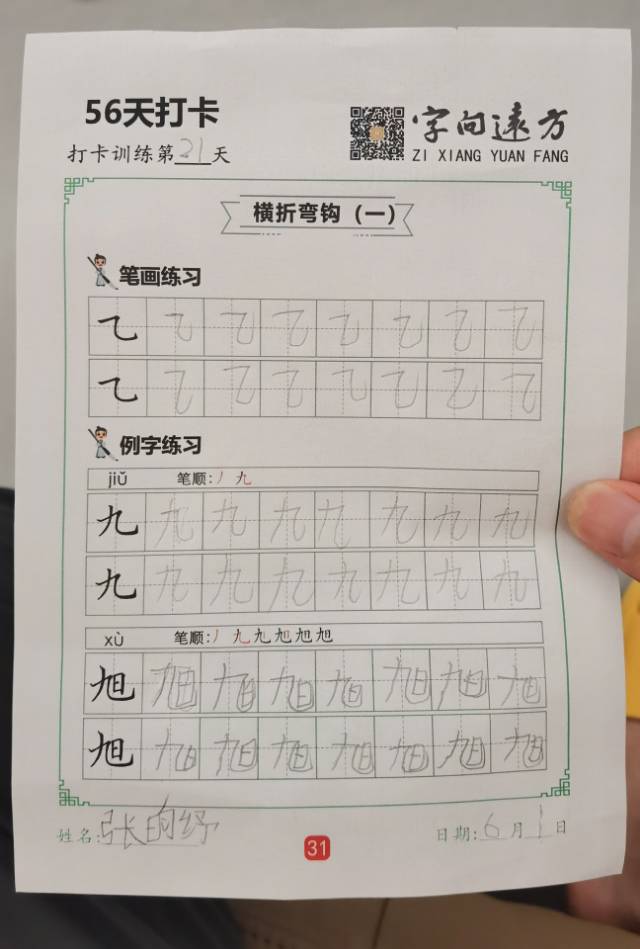 56天打卡
打卡训练第21天
字向远方
ZI XIANG YUAN FANG
横折弯钩（一）
笔画练习
㇈ ㇈ ㇈ ㇈ ㇈ ㇈ ㇈ ㇈
㇈ ㇈ ㇈ ㇈ ㇈ ㇈ ㇈ ㇈
例字练习
jiǔ 笔顺:丿 九
九 九 九 九 九 九 九 九
九 九 九 九 九 九 九 九
xù 笔顺:丿 九 九 旭 旭 旭
旭 旭 旭 旭 旭 旭 旭 旭
旭 旭 旭 旭 旭 旭 旭 旭
姓名:张昀纾
31
日期:6月1日